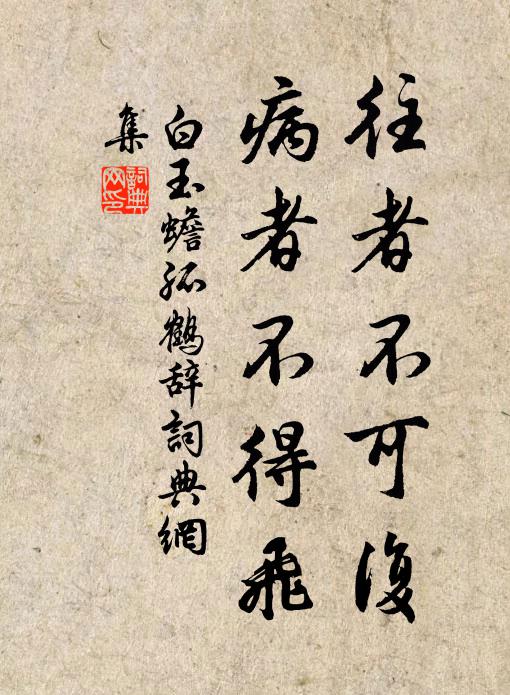 往者不可復
病者不得飛
白玉蟾孤鶴辞詞典網
集
詞典
网印